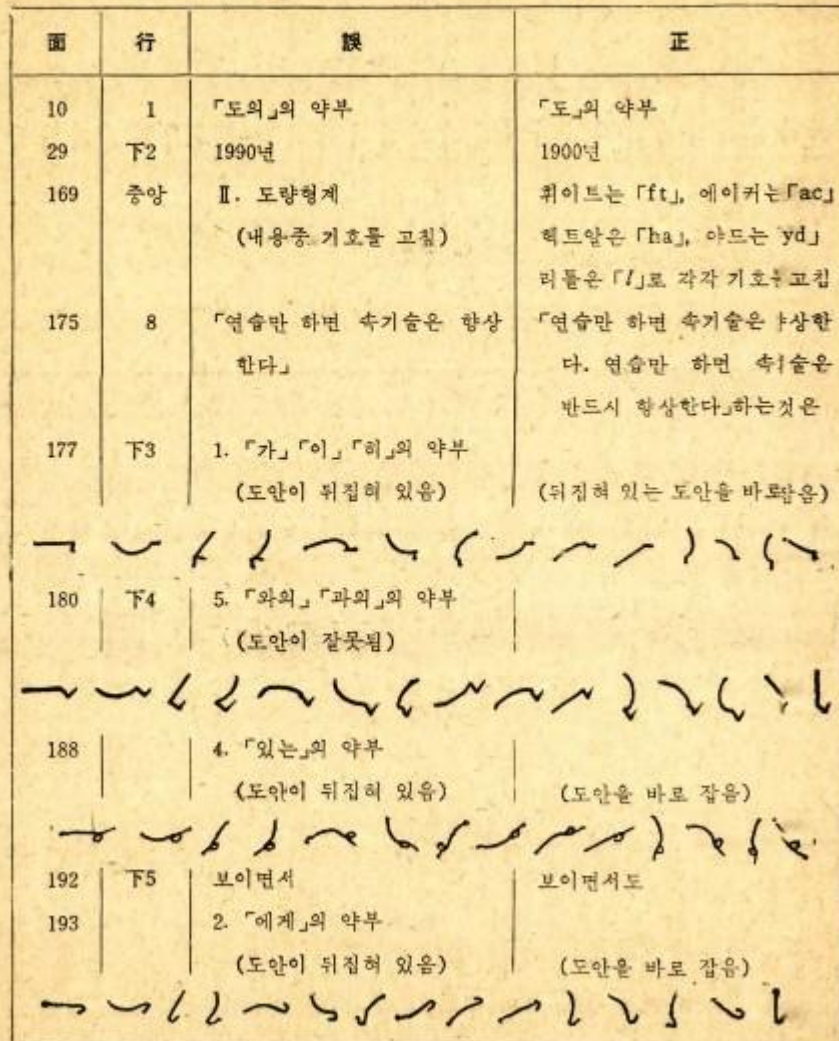 面 行 誤 正
10 1 「도의」의 약부 「도」의 약부
29 下2 1990년 1900년
169 중앙 Ⅱ. 도량형계 휘이트는 「ft」, 에이커는 「ac」
(내용중 기호를 고침) 헥트알은 「ha」, 야드는 yd」
리틀은 「l」로 각각 기호를 고침
175 8 「연습만 하면 속기술은 향상 「연습만 하면 속기술은 향상한
한다」 다. 연습만 하면 속기술은
반드시 향상한다」하는것은
177 下3 1. 「가」 「이」 「히」의 약부
(도안이 뒤집혀 있음) (뒤집혀 있는 도안을 바로잡음)
180 下4 5. 「와의」 「과의」의 약부
(도안이 잘못됨)
188 4. 「있는」의 약부
(도안이 뒤집혀 있음) (도안을 바로 잡음)
192 下5 보이면서 보이면서도
193 2. 「에게」의 약부
(도안이 뒤집혀 있음) (도안을 바로 잡음)